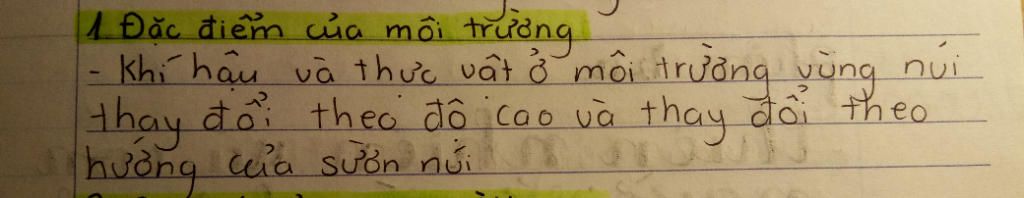 1. Đặc điểm của môi trường
- Khí hậu và thực vật ở môi trường vùng núi
thay đổi theo độ cao và thay đổi theo
hướng của sườn núi